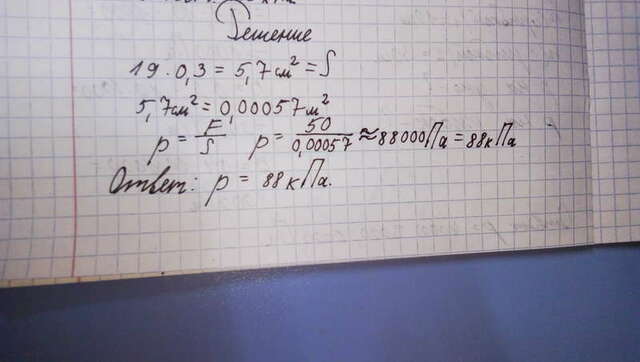 Решение
19 · 0,3 = 5,7 см² = S
5,7 см² = 0,00057 м²
p = F/S p = 50/0,00057 ≈ 88000 Па = 88 кПа
Ответ: p = 88 кПа.